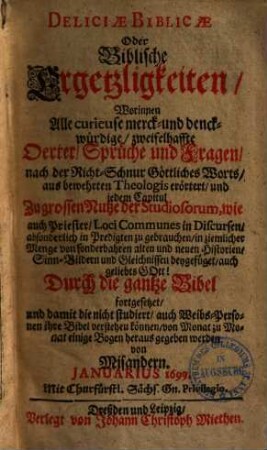 DELICIÆ BIBLICÆ
Oder
Biblische
Ergetzligkeiten/
Worinnen
Alle curieuse merck- und denck-
würdige/ zweiffelhaffte
Oerter/ Sprüche und Fragen/
nach der Richt-Schnur Göttliches Worts/
aus bewehrten Theologis erörtert/ und
jedem Capitul
Zu grossen Nutze der Studiosorum, wie
auch Priester/ Loci Communes in Discursen/
absonderlich in Predigten zu gebrauchen/ in ziemlicher
Menge von sonderbahren alten und neuen Historien/
Sinn-Bildern und Gleichnissen beygefüget/ auch
geliebts GOtt!
Durch die gantze Bibel
fortgesetzet/
und damit die nicht studiert/ auch Weibs-Perso-
nen ihre Bibel verstehen können/ von Monat zu Mo-
nat einige Bogen heraus gegeben werden
von
Misandern.
JANUARIUS 1697.
Mit Churfürstl. Sächs. Gn. Privilegio.
Dreßden und Leipzig/
Verlegt von Johann Christoph Miethen.